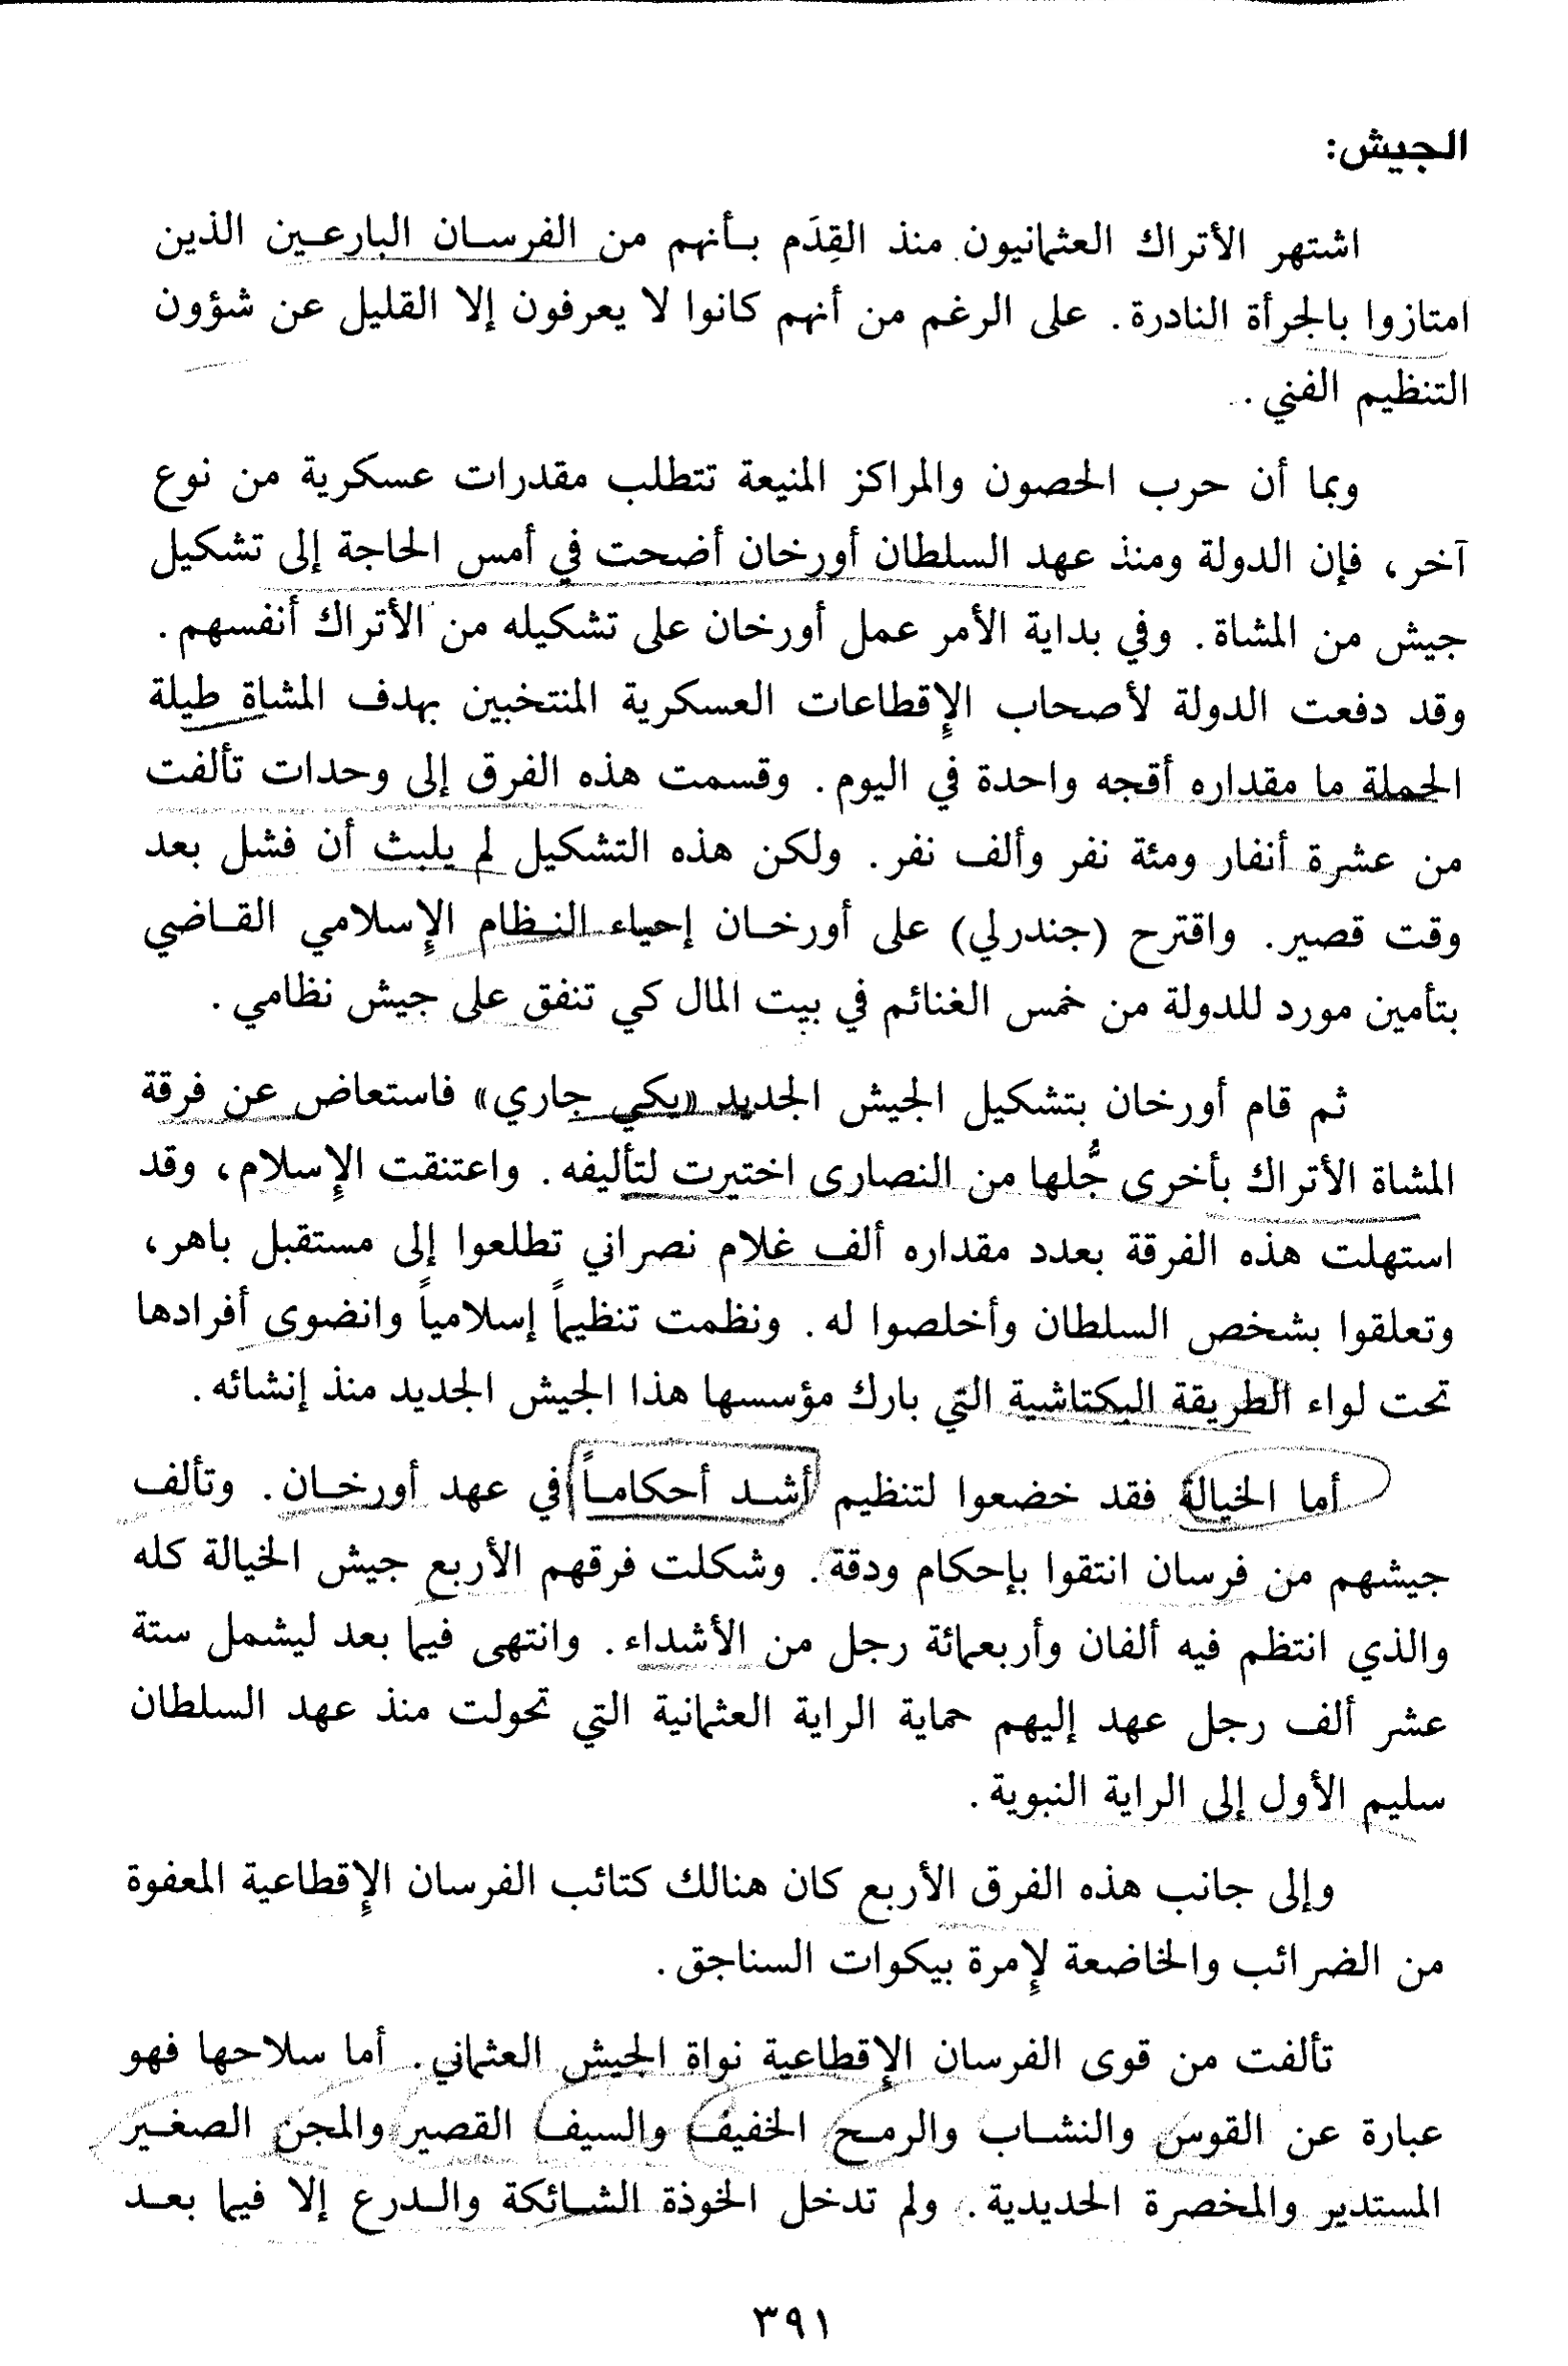 الجيش:
اشتهر الأتراك العثمانيون منذ القِدَم بأنهم من الفرسان البارعين الذين
امتازوا بالجرأة النادرة. على الرغم من أنهم كانوا لا يعرفون إلا القليل عن شؤون
التنظيم الفني.
وبما أن حرب الحصون والمراكز المنيعة تتطلب مقدرات عسكرية من نوع
آخر، فإن الدولة ومنذ عهد السلطان أورخان أضحت في أمس الحاجة إلى تشكيل
جيش من المشاة. وفي بداية الأمر عمل أورخان على تشكيله من الأتراك أنفسهم.
وقد دفعت الدولة لأصحاب الإقطاعات العسكرية المنتخبين بهدف المشاة طيلة
الحملة ما مقداره أقجه واحدة في اليوم. وقسمت هذه الفرق إلى وحدات تألفت
من عشرة أنفار ومئة نفر وألف نفر. ولكن هذه التشكيل لم يلبث أن فشل بعد
وقت قصير. واقترح (جندرلي) على أورخان إحياء النظام الإسلامي القاضي
بتأمين مورد للدولة من خمس الغنائم في بيت المال كي تنفق على جيش نظامي.
ثم قام أورخان بتشكيل الجيش الجديد «يكي جاري» فاستعاض عن فرقة
المشاة الأتراك بأخرى جُّلها من النصارى اختيرت لتأليفه. واعتنقت الإسلام، وقد
استهلت هذه الفرقة بعدد مقداره ألف غلام نصراني تطلعوا إلى مستقبل باهر،
وتعلقوا بشخص السلطان وأخلصوا له. ونظمت تنظيماً إسلامياً وانضوى أفرادها
تحت لواء الطريقة البكتاشية التي بارك مؤسسها هذا الجيش الجديد منذ إنشائه.
أما الخيالة فقد خضعوا لتنظيم أشد أحكاماً في عهد أورخان. وتألف
جيشهم من فرسان انتقوا بإحكام ودقة. وشكلت فرقهم الأربع جيش الخيالة كله
والذي انتظم فيه ألفان وأربعمائة رجل من الأشداء. وانتهى فيما بعد ليشمل ستة
عشر ألف رجل عهد إليهم حماية الراية العثمانية التي تحولت منذ عهد السلطان
سليم الأول إلى الراية النبوية.
وإلى جانب هذه الفرق الأربع كان هنالك كتائب الفرسان الإقطاعية المعفوة
من الضرائب والخاضعة لإمرة بيكوات السناجق.
تألفت من قوى الفرسان الإقطاعية نواة الجيش العثماني. أما سلاحها فهو
عبارة عن القوس والنشاب والرمح الخفيف والسيف القصير والمجن الصغير
المستدير والمخصرة الحديدية. ولم تدخل الخوذة الشائكة والدرع إلا فيما بعد
٣٩١